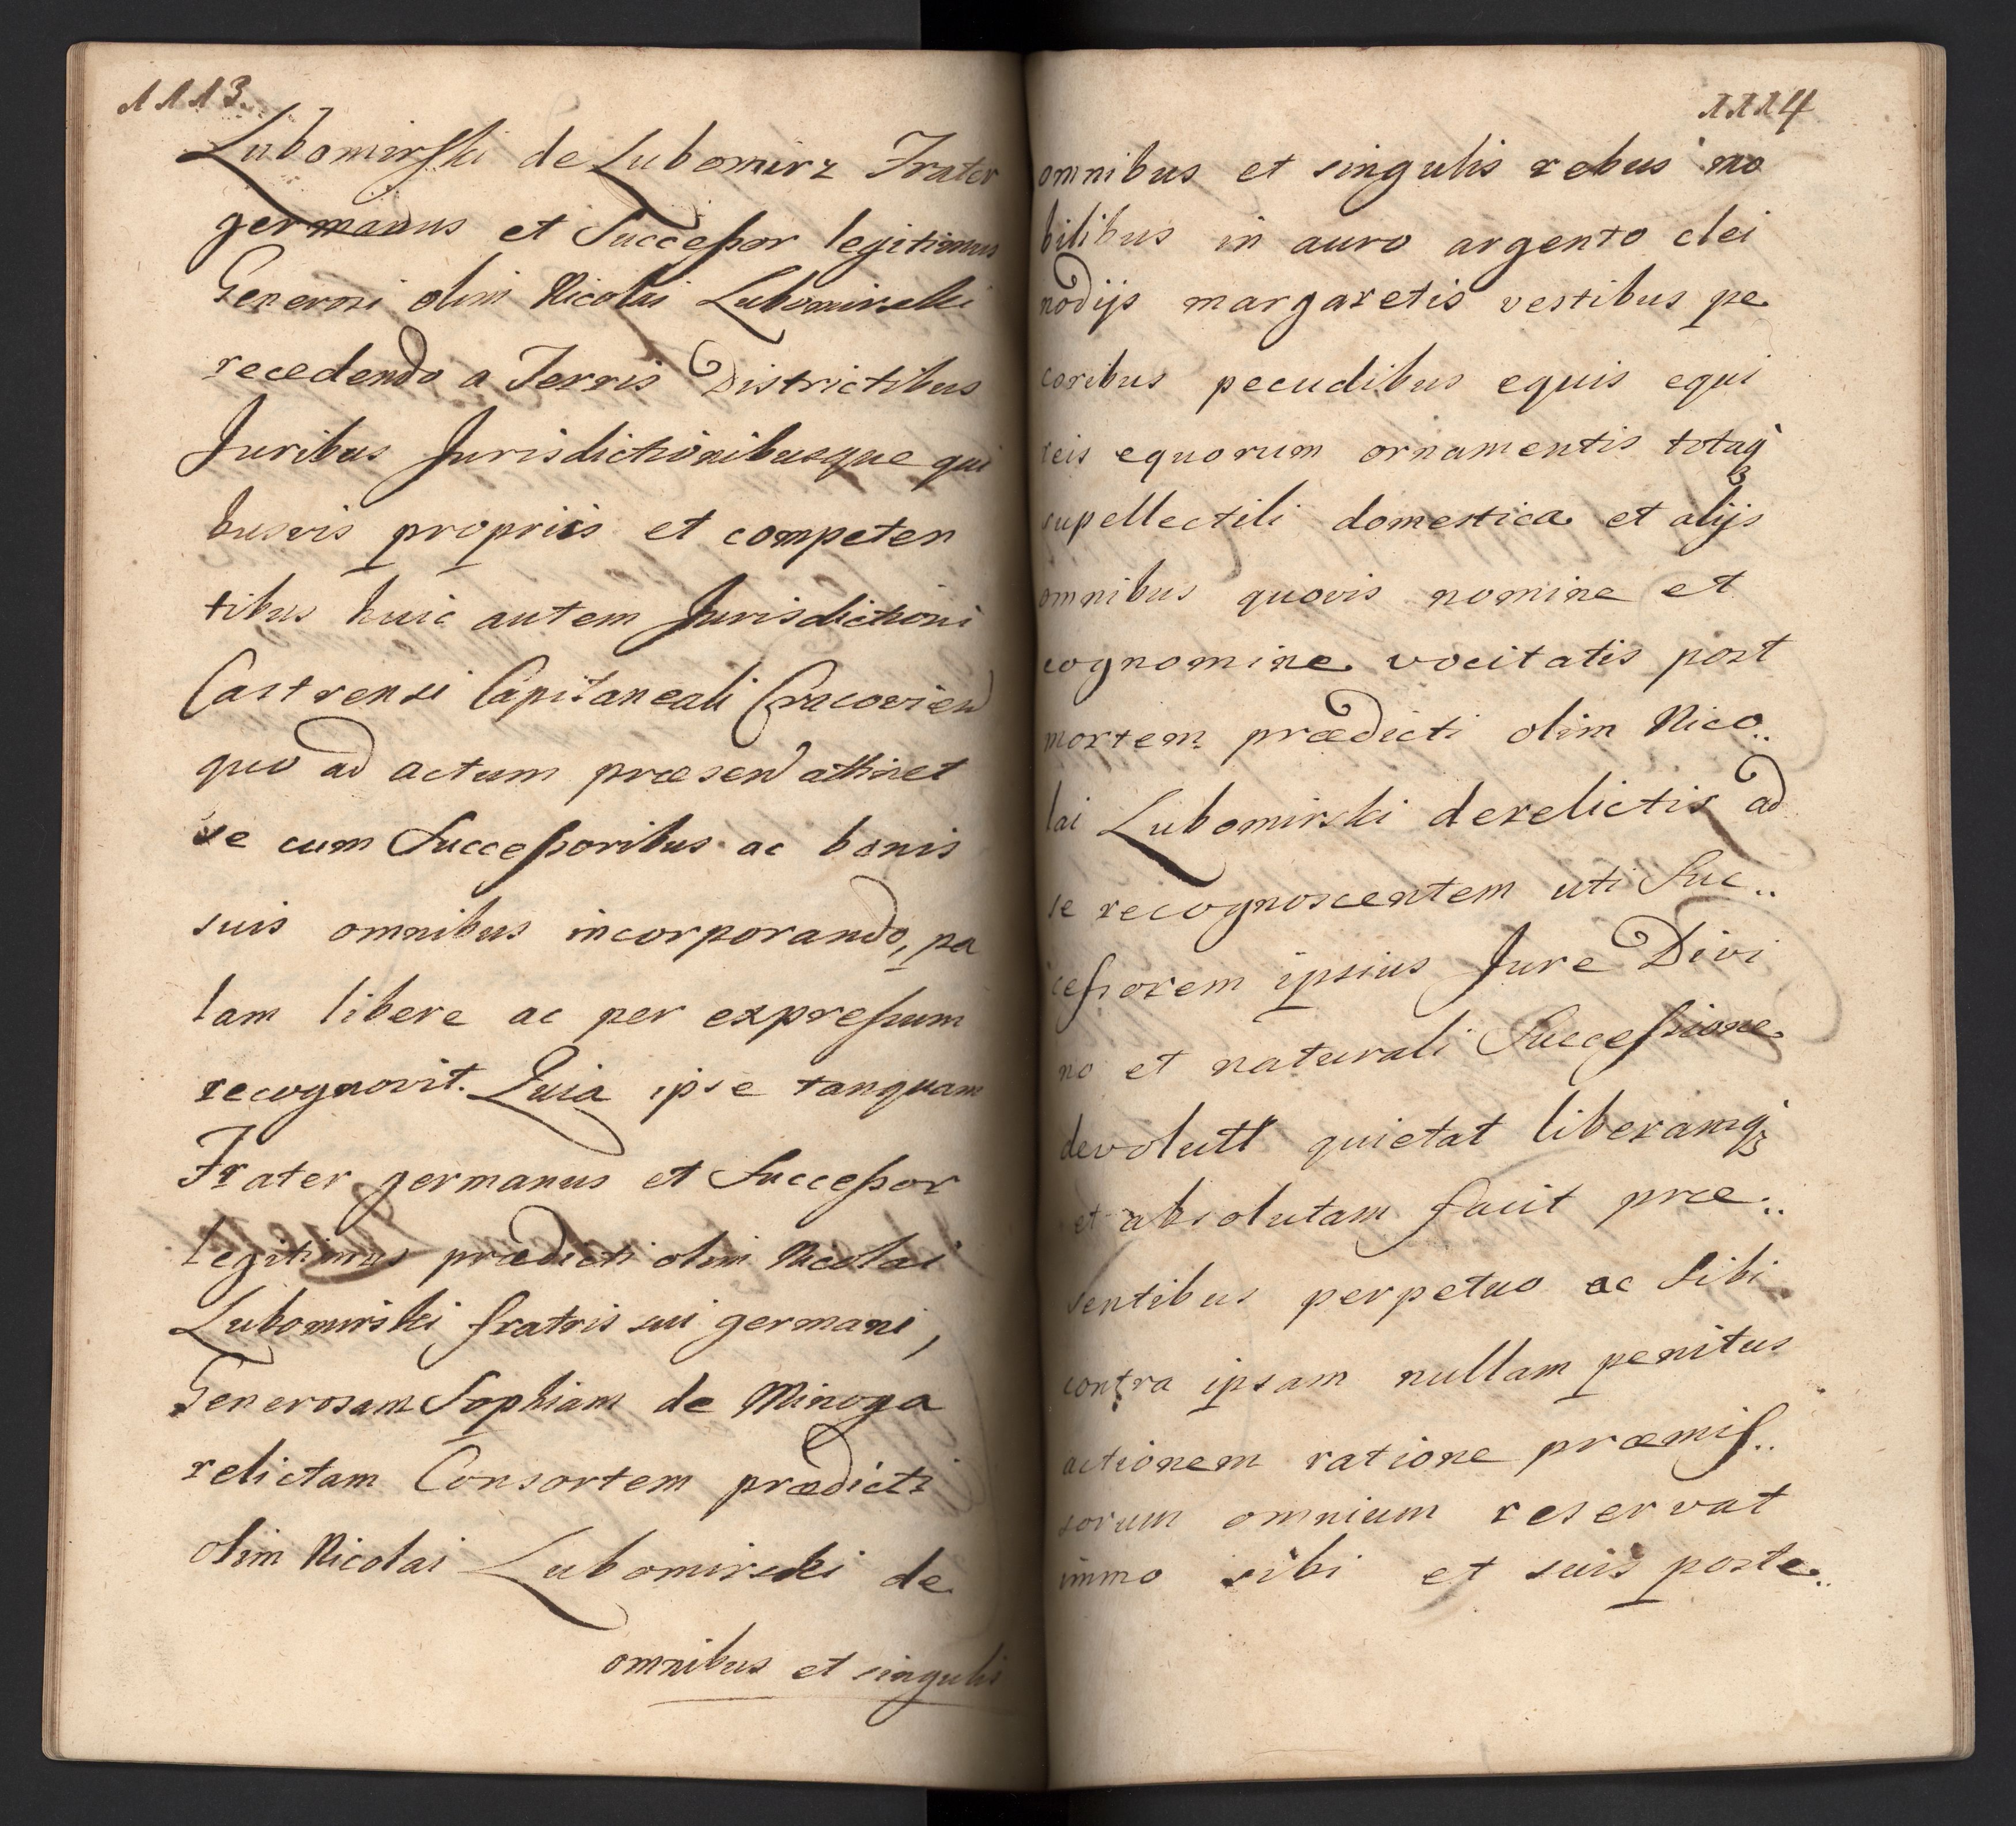 1113.
Lubomirski de Lubomirz Frater
germanus et Successor legitimus
Generosi olim Nicolai Lubomirski
recedendo a Terris Districtibus
Juribus Jurisdictionibusque qui
busvis propriis et competen
tibus huic autem Jurisdictioni
Castrensi Capitaneali Cracovien
quo ad actum præsen attinet
se cum Successoribus ac bonis
suis omnibus incorporando, pa
lam libere ac per expressum
recognovit. Quia ipse tanquam
Frater germanus et Successor
legitimus prædicti olim Nicolai
Lubomirski fratris sui germani,
Generosam Sophiam de Minoga
relictam Consortem prædicti
olim Nicolai Lubomirski de
omnibus et singulis
1114
omnibus et singulis rebus mo
bilibus in auro argento clei
nodijs margaretis vestibus pe
coribus pecudibus equis equi
reis equorum ornamentis totaq
supellectili domestica et alijs
omnibus quovis nomine et
cognomine vocitatis post
mortem prædicti olim Nico..
lai Lubomirski derelictis ad
se recognoscentem uti Suc..
cessorem ipsius Jure Divi
no et naturali Successione
devolutt quietat liberamq;
et absolutam facit præ..
sentibus perpetuo ac sibi
contra ipsam nullam penitus
actionem ratione præmis..
sorum omnium reservat
immo sibi et suis poste..